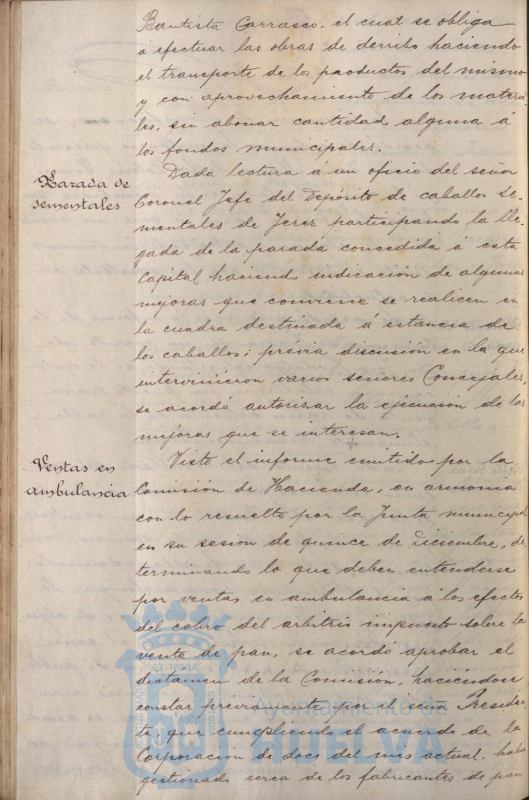 Bautista Carrasco, el cual se obliga
á efectuar las obras de derribo haciendo
el transporte de los productos del mismo
y con aprovechamiento de los materia
les, sin abonar cantidad alguna á
los fondos municipales.
Parada de
sementales
Dada lectura á un oficio del señor
Coronel Jefe del Depósito de caballos se-
mentales de Jerez participando la lle-
gada de la parada concedida á esta
Capital haciendo indicación de algunas
mejoras que conviene se realicen en
la cuadra destinada á estancia de
los caballos; prévia discusión en la que
intervinieron varios señores Concejales,
se acordó autorizar la ejecución de las
mejoras que se interesan.
Ventas en
ambulancia
Visto el informe emitido por la
Comisión de Hacienda, en armonia
con lo resuelto por la Junta municipal
en su sesion de quince de Diciembre, de
terminando lo que deben entenderse
por ventas en ambulancia á los efectos
del cobro del arbitrio impuesto sobre la
venta de pan, se acordó aprobar el
dictamen de la Comisión, haciéndose
constar previamente por el señor Presiden
te, que cumpliendo el acuerdo de la
Corporacion de doce del mes actual, habia
gestionado cerca de los fabricantes de pan
Ayuntamiento de
HUELVA